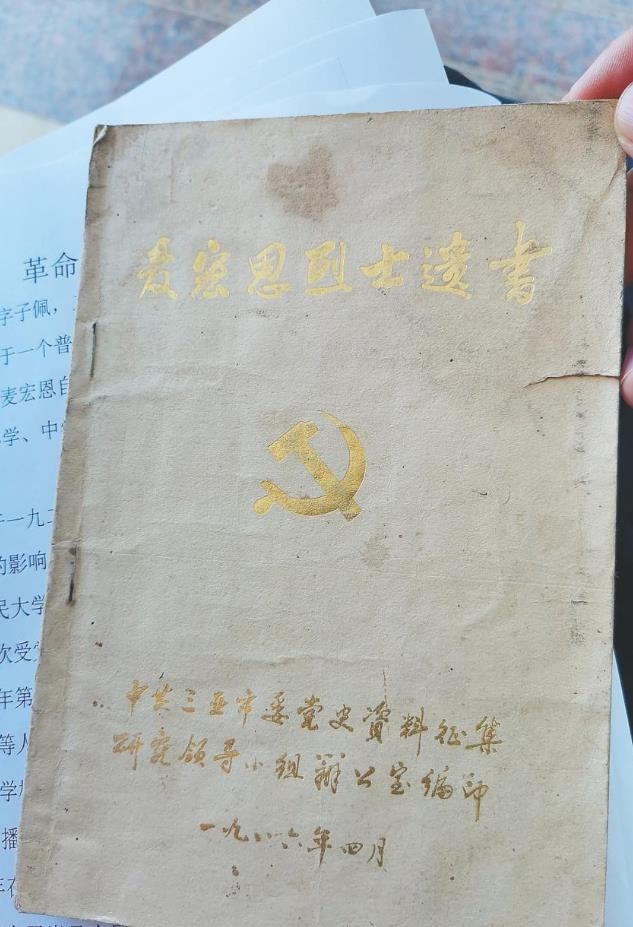 麦宏恩烈士遺書
中共三亚市委党史資料征集
研究领导小组辦公室编印
一九八六年四月
革命
字子佩，
于一个普
麦宏恩自
学、中
一九二
的影响
民大学
次受
年第
等人
学
播
在